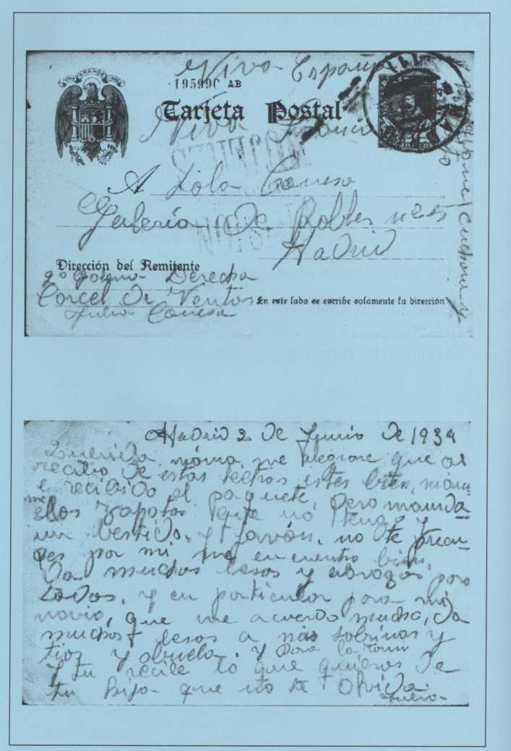 Viva España
195990 AB
Tarjeta Postal
Viva
A Lola Conesa
Galería de Robles nº 5
Madrid
Dirección del Remitente
2º Galería Derecha
Carcel De Ventas
Julia Conesa
En este lado se escribe solamente la dirección
Madrid 2 De Junio De 1939
Querida mama me alegrare que al
recibo De estas letras estes bien, mama
e recibido el paquete, pero manda
me los zapatos que no tengo y
un bestido, y javón, no te preocu
pes por mi me encuentro bien,
Da muchos besos y abrazos para
todos, y en particular para mi
novio, que me acuerdo mucho, da
muchos besos a mis sobrinas y
tios y abuela. y Para la
Y tu recibe lo que quieras De
tu hija que no te Olvida
Julia